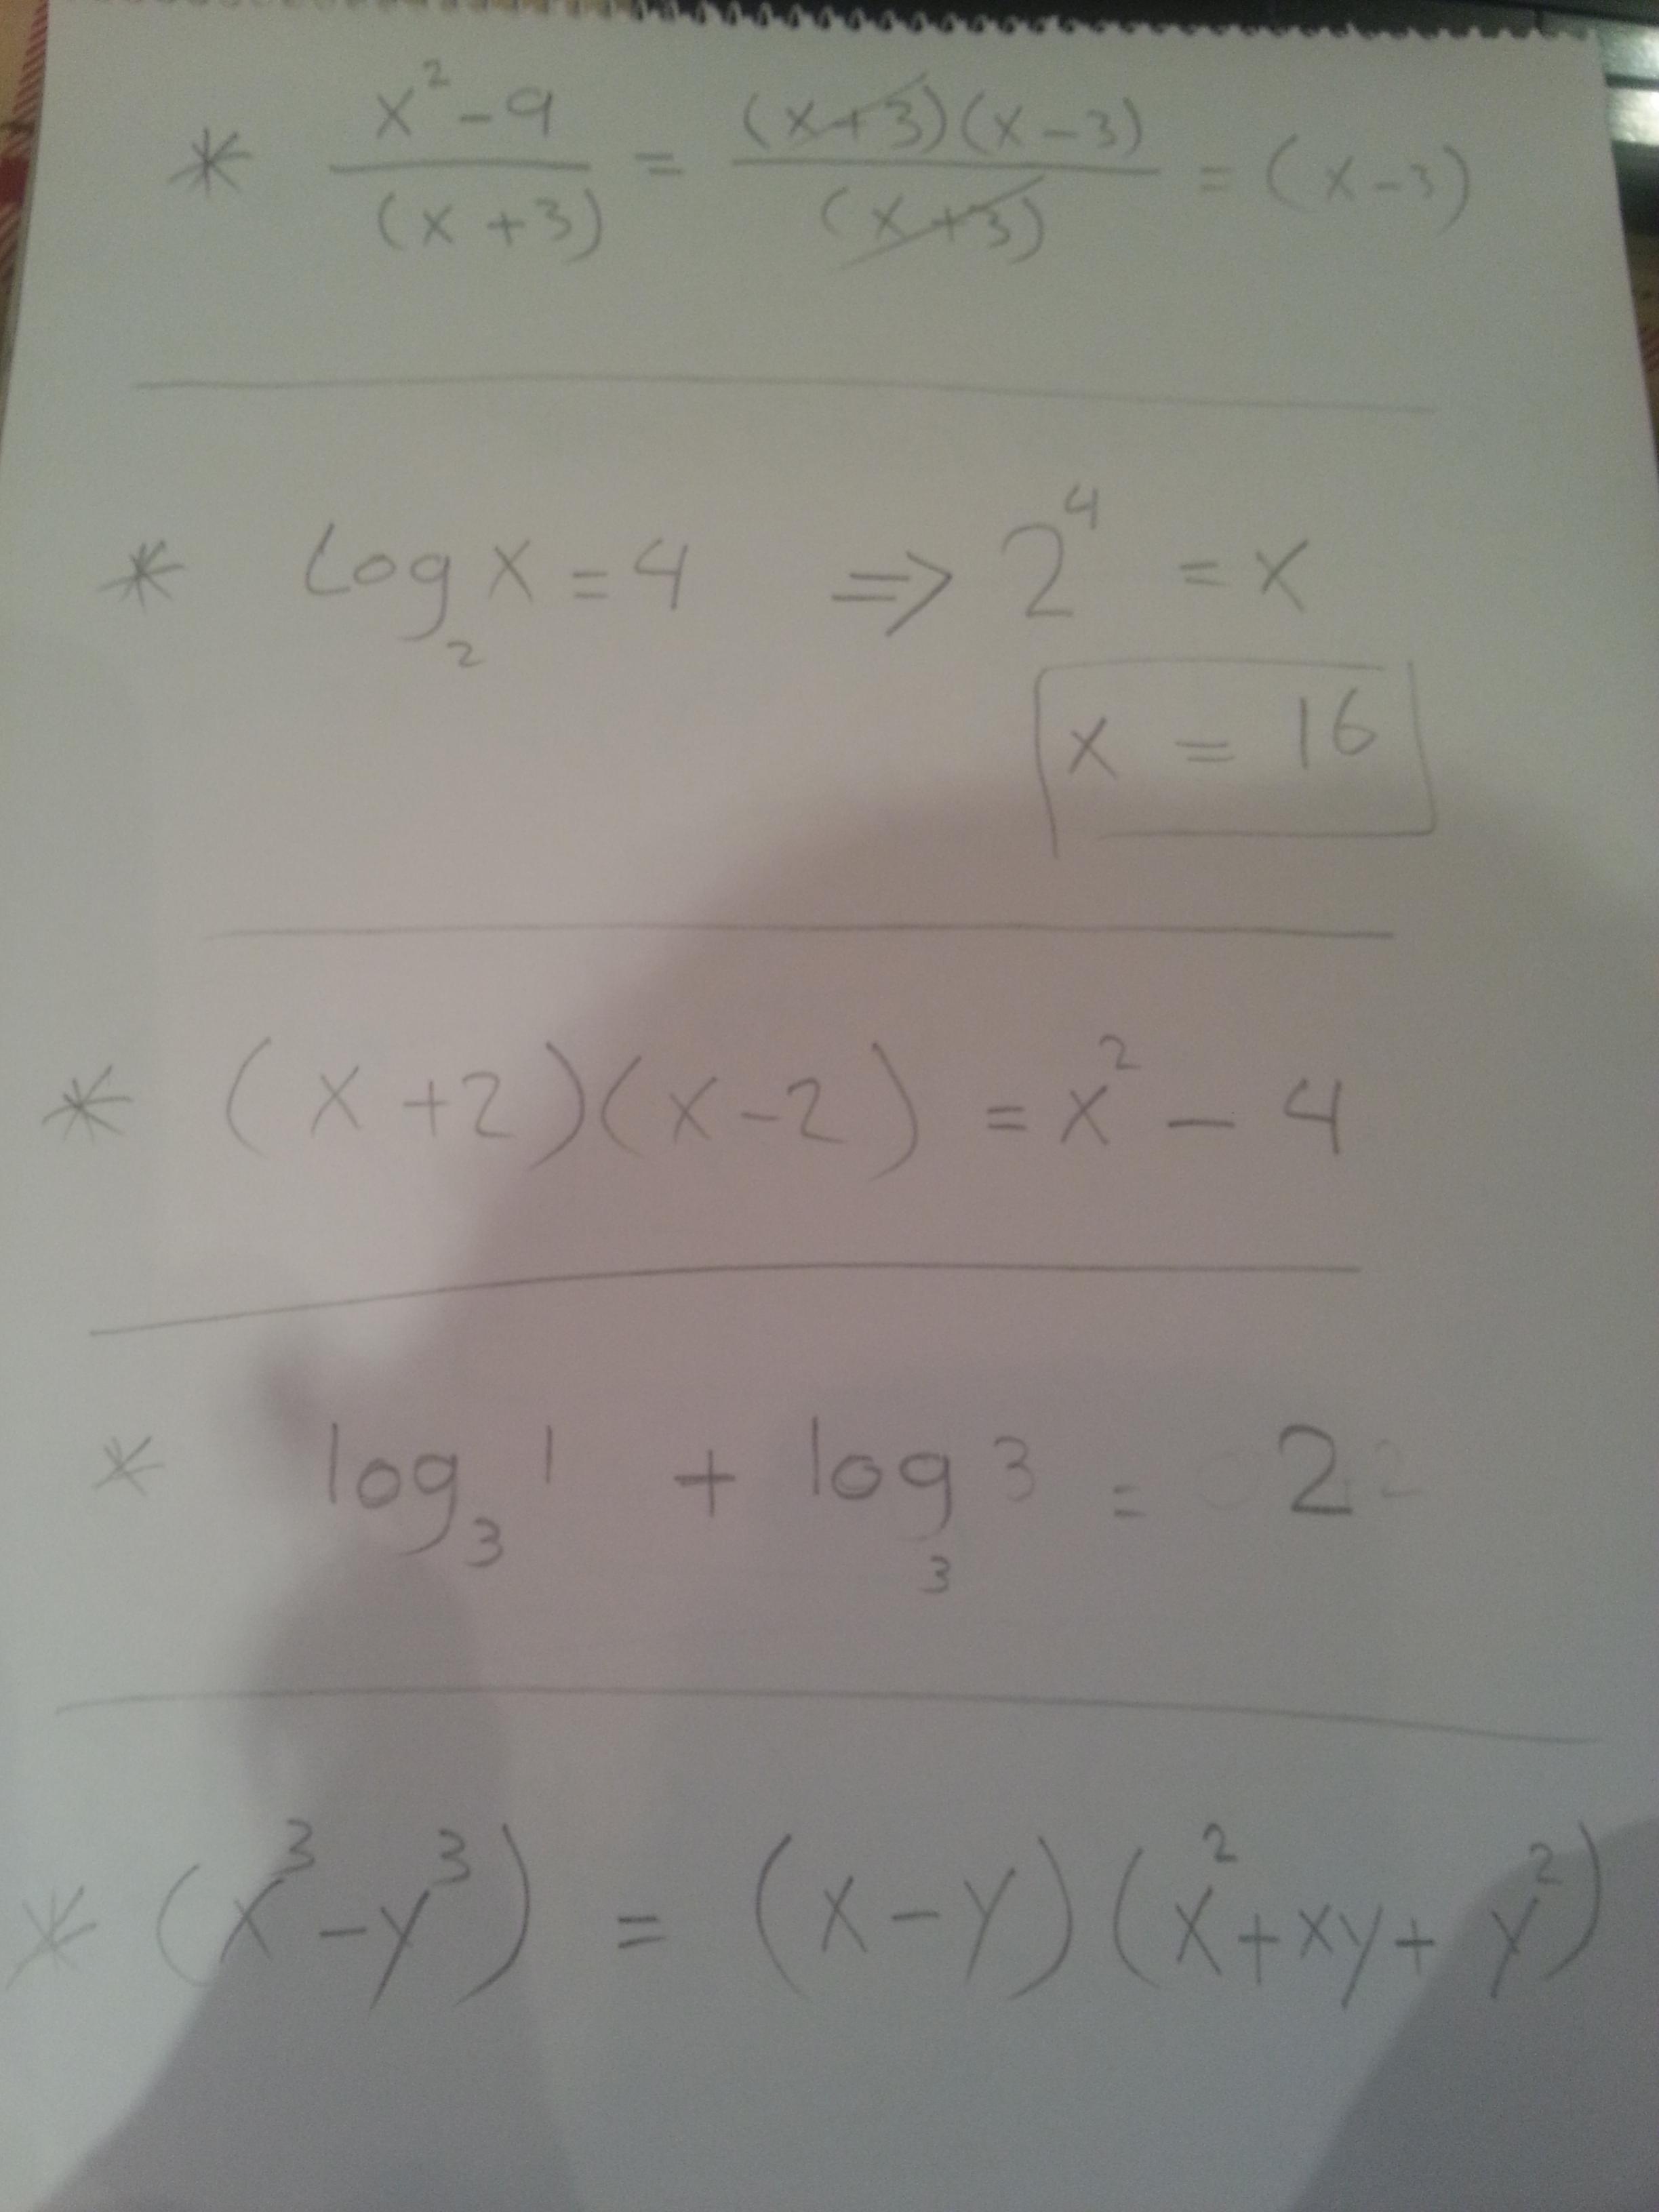 * x²-9 / (x+3) = (x+3)(x-3) / (x+3) = (x-3)
* Log₂ x = 4 => 2⁴ = x
x = 16
* (x+2)(x-2) = x² - 4
* log₃ 1 + log₃ 3 = 2
* (x³-y³) = (x-y)(x²+xy+y²)